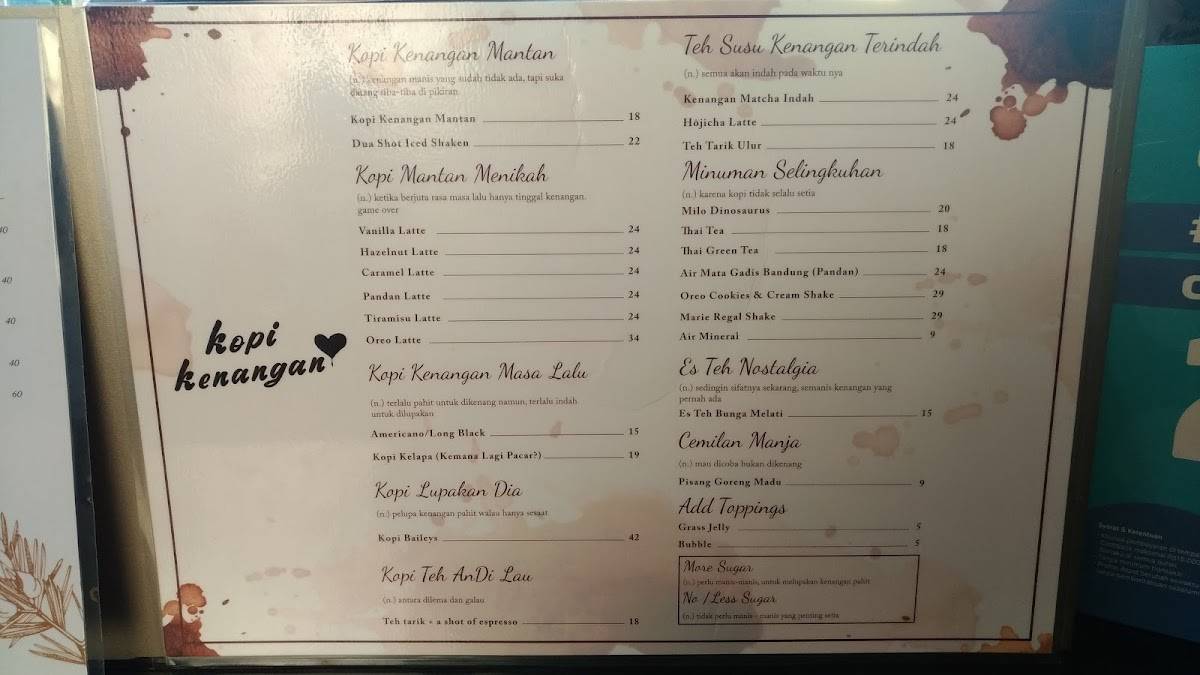 40
40
40
40
60
kopi
kenangan
Kopi Kenangan Mantan
(n.) kenangan manis yang sudah tidak ada, tapi suka
datang tiba-tiba di pikiran.
Kopi Kenangan Mantan 18
Dua Shot Iced Shaken 22
Kopi Mantan Menikah
(n.) ketika berjuta rasa masa lalu hanya tinggal kenangan.
game over
Vanilla Latte 24
Hazelnut Latte 24
Caramel Latte 24
Pandan Latte 24
Tiramisu Latte 24
Oreo Latte 34
Kopi Kenangan Masa Lalu
(n.) terlalu pahit untuk dikenang namun, terlalu indah
untuk dilupakan
Americano/Long Black 15
Kopi Kelapa (Kemana Lagi Pacar?) 19
Kopi Lupakan Dia
(n.) pelupa kenangan pahit walau hanya sesaat
Kopi Baileys 42
Kopi Teh AnDi Lau
(n.) antara dilema dan galau
Teh tarik + a shot of espresso 18
Teh Susu Kenangan Terindah
(n.) semua akan indah pada waktu nya
Kenangan Matcha Indah 24
Hōjicha Latte 24
Teh Tarik Ulur 18
Minuman Selingkuhan
(n.) karena kopi tidak selalu setia
Milo Dinosaurus 20
Thai Tea 18
Thai Green Tea 18
Air Mata Gadis Bandung (Pandan) 24
Oreo Cookies & Cream Shake 29
Marie Regal Shake 29
Air Mineral 9
Es Teh Nostalgia
(n.) sedingin sifatnya sekarang, semanis kenangan yang
pernah ada
Es Teh Bunga Melati 15
Cemilan Manja
(n.) mau dicoba bukan dikenang
Pisang Goreng Madu 9
Add Toppings
Grass Jelly 5
Bubble 5
More Sugar
(n.) perlu manis-manis, untuk melupakan kenangan pahit
No / Less Sugar
(n.) tidak perlu manis - manis yang penting setia
Syarat & Ketentuan